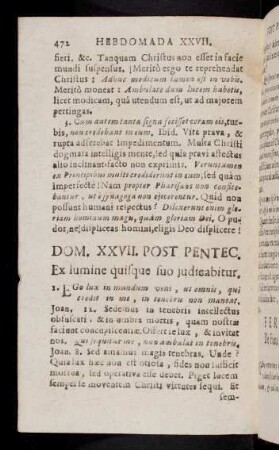 472 HEBDOMADA XXVII.
fieri, &c. Tanquam Christus non esset in facie
mundi suspensus. Meritò ergo te reprehendat
Christus: Adhuc modicum lumen est in vobis.
Meritò moneat: Ambulate dum lucem habetis,
licet modicam, quâ utendum est, ut ad majorem
pertingas.
3. Cum autem tanta signa fecisset coram eis, tur-
bis, non credebant in eum, Ibid. Vita prava, &
rupta adferebat impedimentum. Multa Christi
dogmata intelligis mente, sed quia pravi affectus
alio inclinant: facto non exprimis. Verumtamen
ex Principibus multi crediderunt in eum, sed quàm
imperfectè! Nam propter Pharisæos non confite-
bantur, ut è synagoga non ejicerentur. Quid non
possunt humani respectus? Dilexerunt enim glo-
riam hominum magis, quàm gloriam Dei, O pu-
dor, ne displiceas homini, eligis Deo displicere!
DOM. XXVII. POST PENTEC.
Ex lumine quisque suo judicabitur.
1. EGo lux in mundum veni, ut omnis, qui
credit in me, in tenebris non maneat,
Joan. 12. Sedemus in tenebris intellectus
obfuscati, & in umbra mortis, quam nostræ
faciunt concupiscentiæ. Offert se lux, & invitat
nos. Qui sequitur me, non ambulat in tenebris,
Joan. 8. Sed amamus magis tenebras. Unde?
Quia lux hæc non est otiosa, fides non sufficit
mortua, sed operativa esse debet. Piget lucem
semper se moventem Christi virtutes sequi. Et
sem-